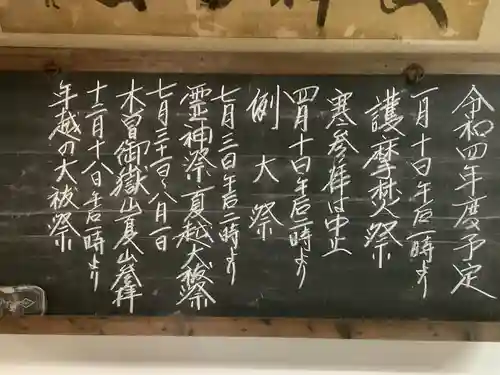 令和四年度予定
一月十日午后一時より
護摩焚祭
寒参拝は中止
四月十日午后一時より
例大祭
七月三日午后二時より
霊神祭・夏越大祓祭
七月三十一日〜八月一日
木曽御嶽山夏山参拝
十二月十八日午后一時より
年越の大祓祭